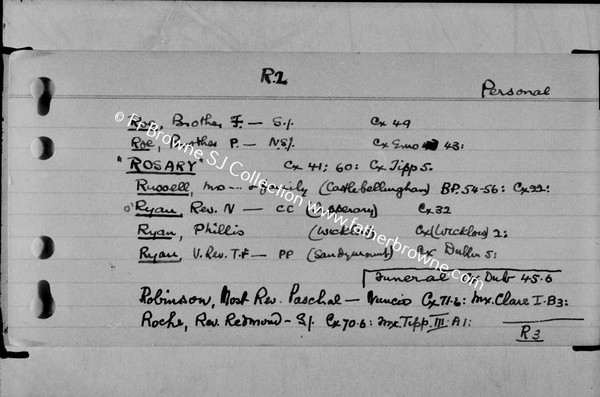 R.2
Personal
Roe, Brother F. — S.J. Cx 49
Roe, Brother P. — N.S.J. Cx Emo 43:
"ROSARY" Cx 41; 60: Cx Tipp 5.
Russell, Mrs — & family (Castlebellingham) BP. 54-56: Cx 22:
Ryan, Rev. N — CC Cx 32
Ryan, Phillis (Wicklow) Cx (Wicklow) 2:
Ryan, V. Rev. T.F — PP (Sandymount) Cx Dublin 5:
Funeral Dub 45.6
Robinson, Most Rev. Paschal — Nuncio Cx 71.6: Mx. Clare I. B3:
Roche, Rev. Redmond — S.J. Cx 70.6: Mx Tipp. III. A1:
R3
© Fr Browne SJ Collection www.fatherbrowne.com